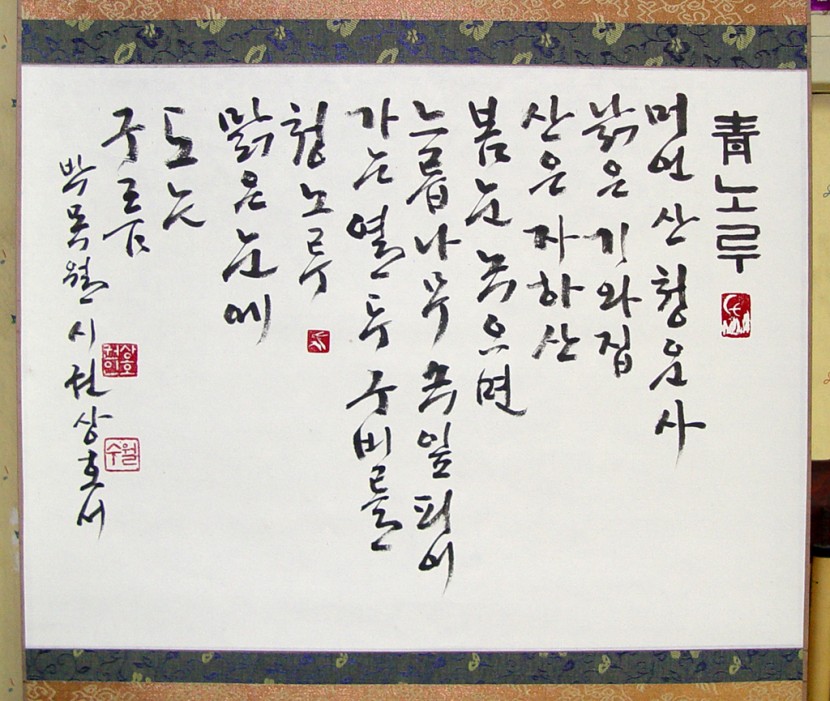 靑노루
머언 산 청운사
낡은 기와집
산은 자하산
봄눈 녹으면
느릅나무 속잎 피어
가는 열두 구비를
청노루
맑은 눈에
도는
구름
박목월 시 권상호 서
수월